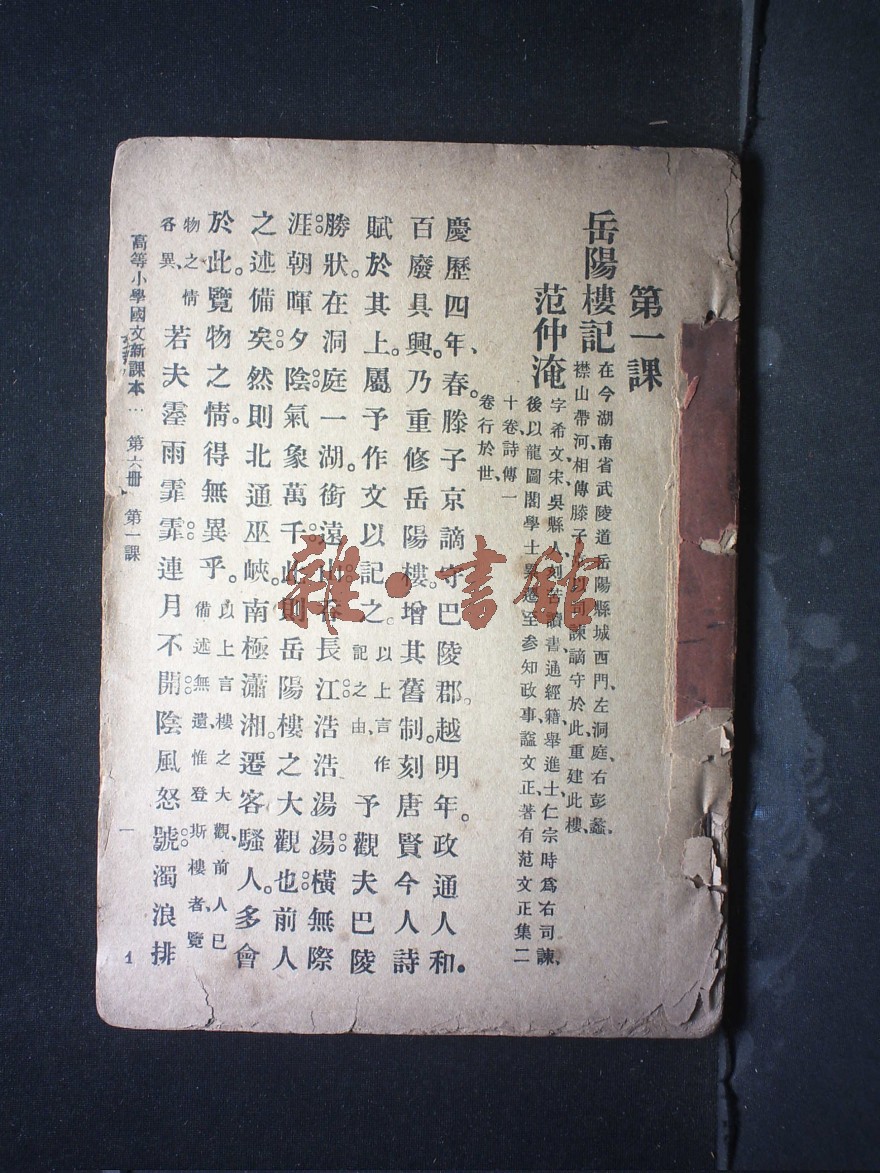 第一課
岳陽樓記
在今湖南省武陵道岳陽縣城西門、左洞庭、右彭蠡、
襟山帶河、相傳滕子京以司諫謫守於此、重建此樓、
范仲淹
字希文、宋吳縣人、刻苦讀書、通經籍、舉進士、仁宗時爲右司諫、
後以龍圖閣學士 至參知政事、諡文正、著有范文正集二
十卷、詩傳一
卷行於世、
慶歷四年、春。滕子京謫守巴陵郡。越明年。政通人和。
百廢具興。乃重修岳陽樓。增其舊制。刻唐賢今人詩
賦於其上。屬予作文以記之。以上言作記之由、予觀夫巴陵
勝狀。在洞庭一湖。銜遠山。吞長江。浩浩湯湯。橫無際
涯。朝暉夕陰。氣象萬千。此則岳陽樓之大觀也。前人
之述備矣。然則北通巫峽。南極瀟湘。遷客騷人。多會
於此。覽物之情。得無異乎。以上言樓之大觀、前人已備述無遺、惟登斯樓者、覽
物之情各異、若夫霪雨霏霏。連月不開。陰風怒號。濁浪排
高等小學國文新課本 第六册 第一課 一
1
雜·書館